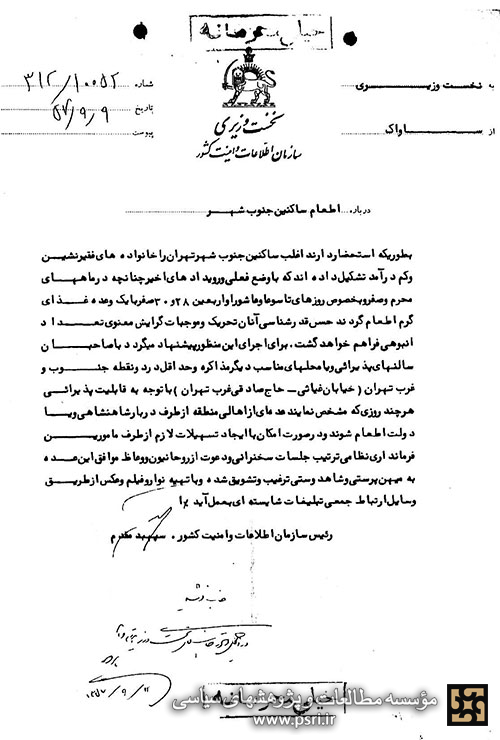 خیلی محرمانه
به نخست وزیری
شماره ۳۱۲/۱۰۰۵۲
تاریخ ۵۷/۹/۹
از ساواک
پیوست
نخست وزیری
سازمان اطلاعات و امنیت کشور
درباره اطعام ساکنین جنوب شهر
بطوریکه استحضار دارند اغلب ساکنین جنوب شهر تهران را خانواده های فقیرنشین
وکم درآمد تشکیل داده اند که با وضع فعلی و رویدادهای اخیر چنانچه در ماههای
محرم وصفر و بخصوص روزهای تاسوعا و عاشورا و اربعین ۲۸ و ۳۰ صفر با یک وعده غذای
گرم اطعام گردند حس قدرشناسی آنان تحریک وموجبات گرایش معنوی تعداد
انبوهی فراهم خواهد گشت. برای اجرای این منظور پیشنهاد میگردد با صاحبان
سالنهای پذیرائی ویا محلهای مناسب دیگر مذاکره وحداقل در دو نقطه جنوب و
غرب تهران (خیابان غیاثی - حاج صادقی غرب تهران) با توجه به قابلیت پذیرائی
هرچند روزی که مشخص نمایند عده ای از اهالی منطقه از طرف دربار شاهنشاهی ویا
دولت اطعام شوند و در صورت امکان با ایجاد تسهیلات لازم از طرف مامورین
فرمانداری نظامی ترتیب جلسات سخنرانی و دعوت از روحانیون و وعاظ موافق این عده
به میهن پرستی وشاهدوستی ترغیب و تشویق شده و با تهیه نوار و فیلم وعکس از طریق
وسایل ارتباط جمعی تبلیغات شایسته ای بعمل آید
رئیس سازمان اطلاعات و امنیت کشور. سپهبد مقدم
۱۳۵۷/۹/۱۲
خیلی محرمانه
مؤسسه مطالعات و پژوهشهای سیاسی
www.psri.ir